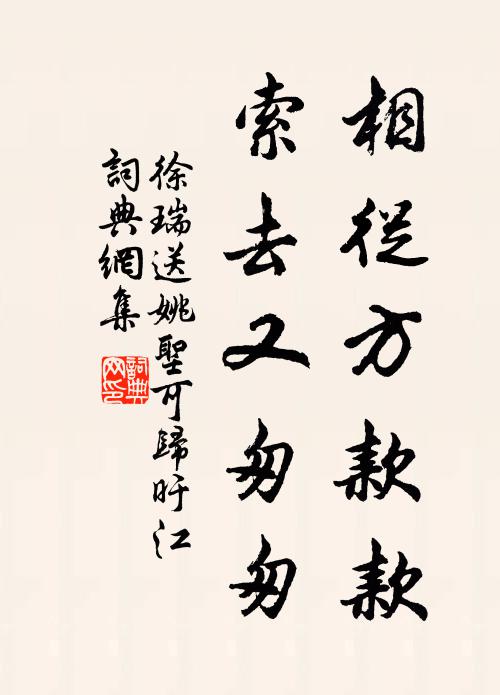 相從方款款
索去又匆匆
徐瑞送姚聖可歸旴江
詞典網集
詞典网印